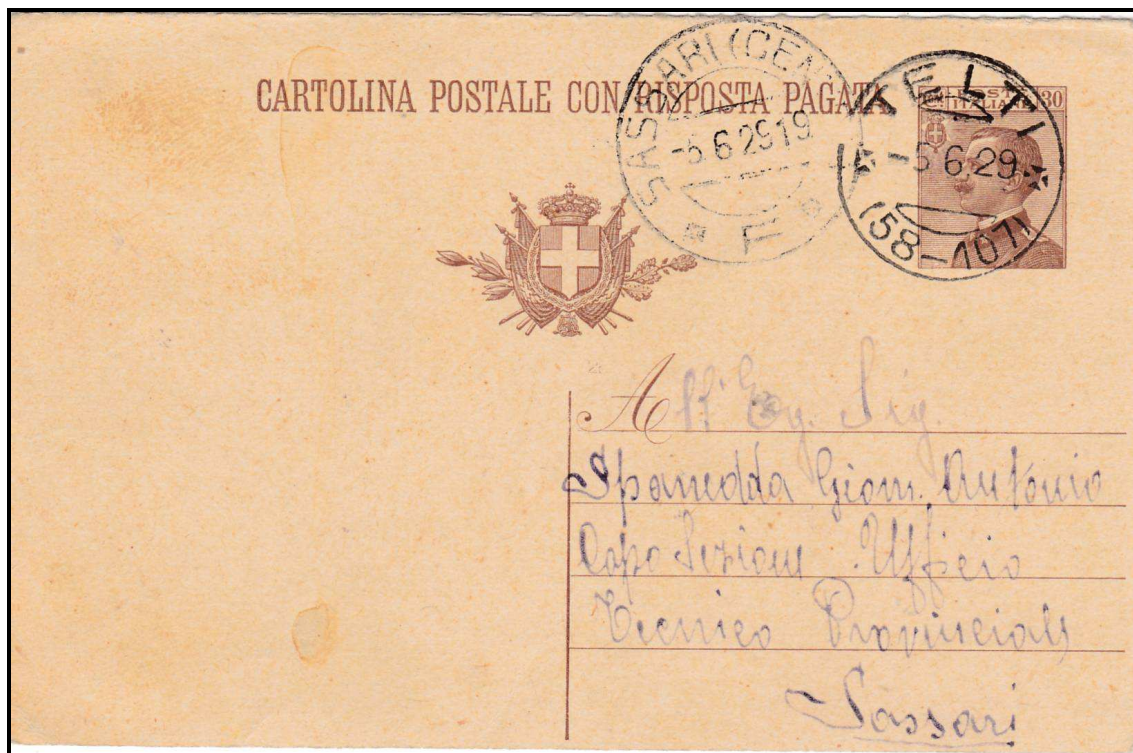 CARTOLINA POSTALE CON RISPOSTA PAGATA
SASSARI (CEN
-5.6.29 19
TELTI
-5 6 29
(58-107)
POSTE
ITALIANE
30
All' Eg. Sig.
Spanedda Giom. Antonio
Capo Sezione Ufficio
Tecnico Provinciale
Sassari